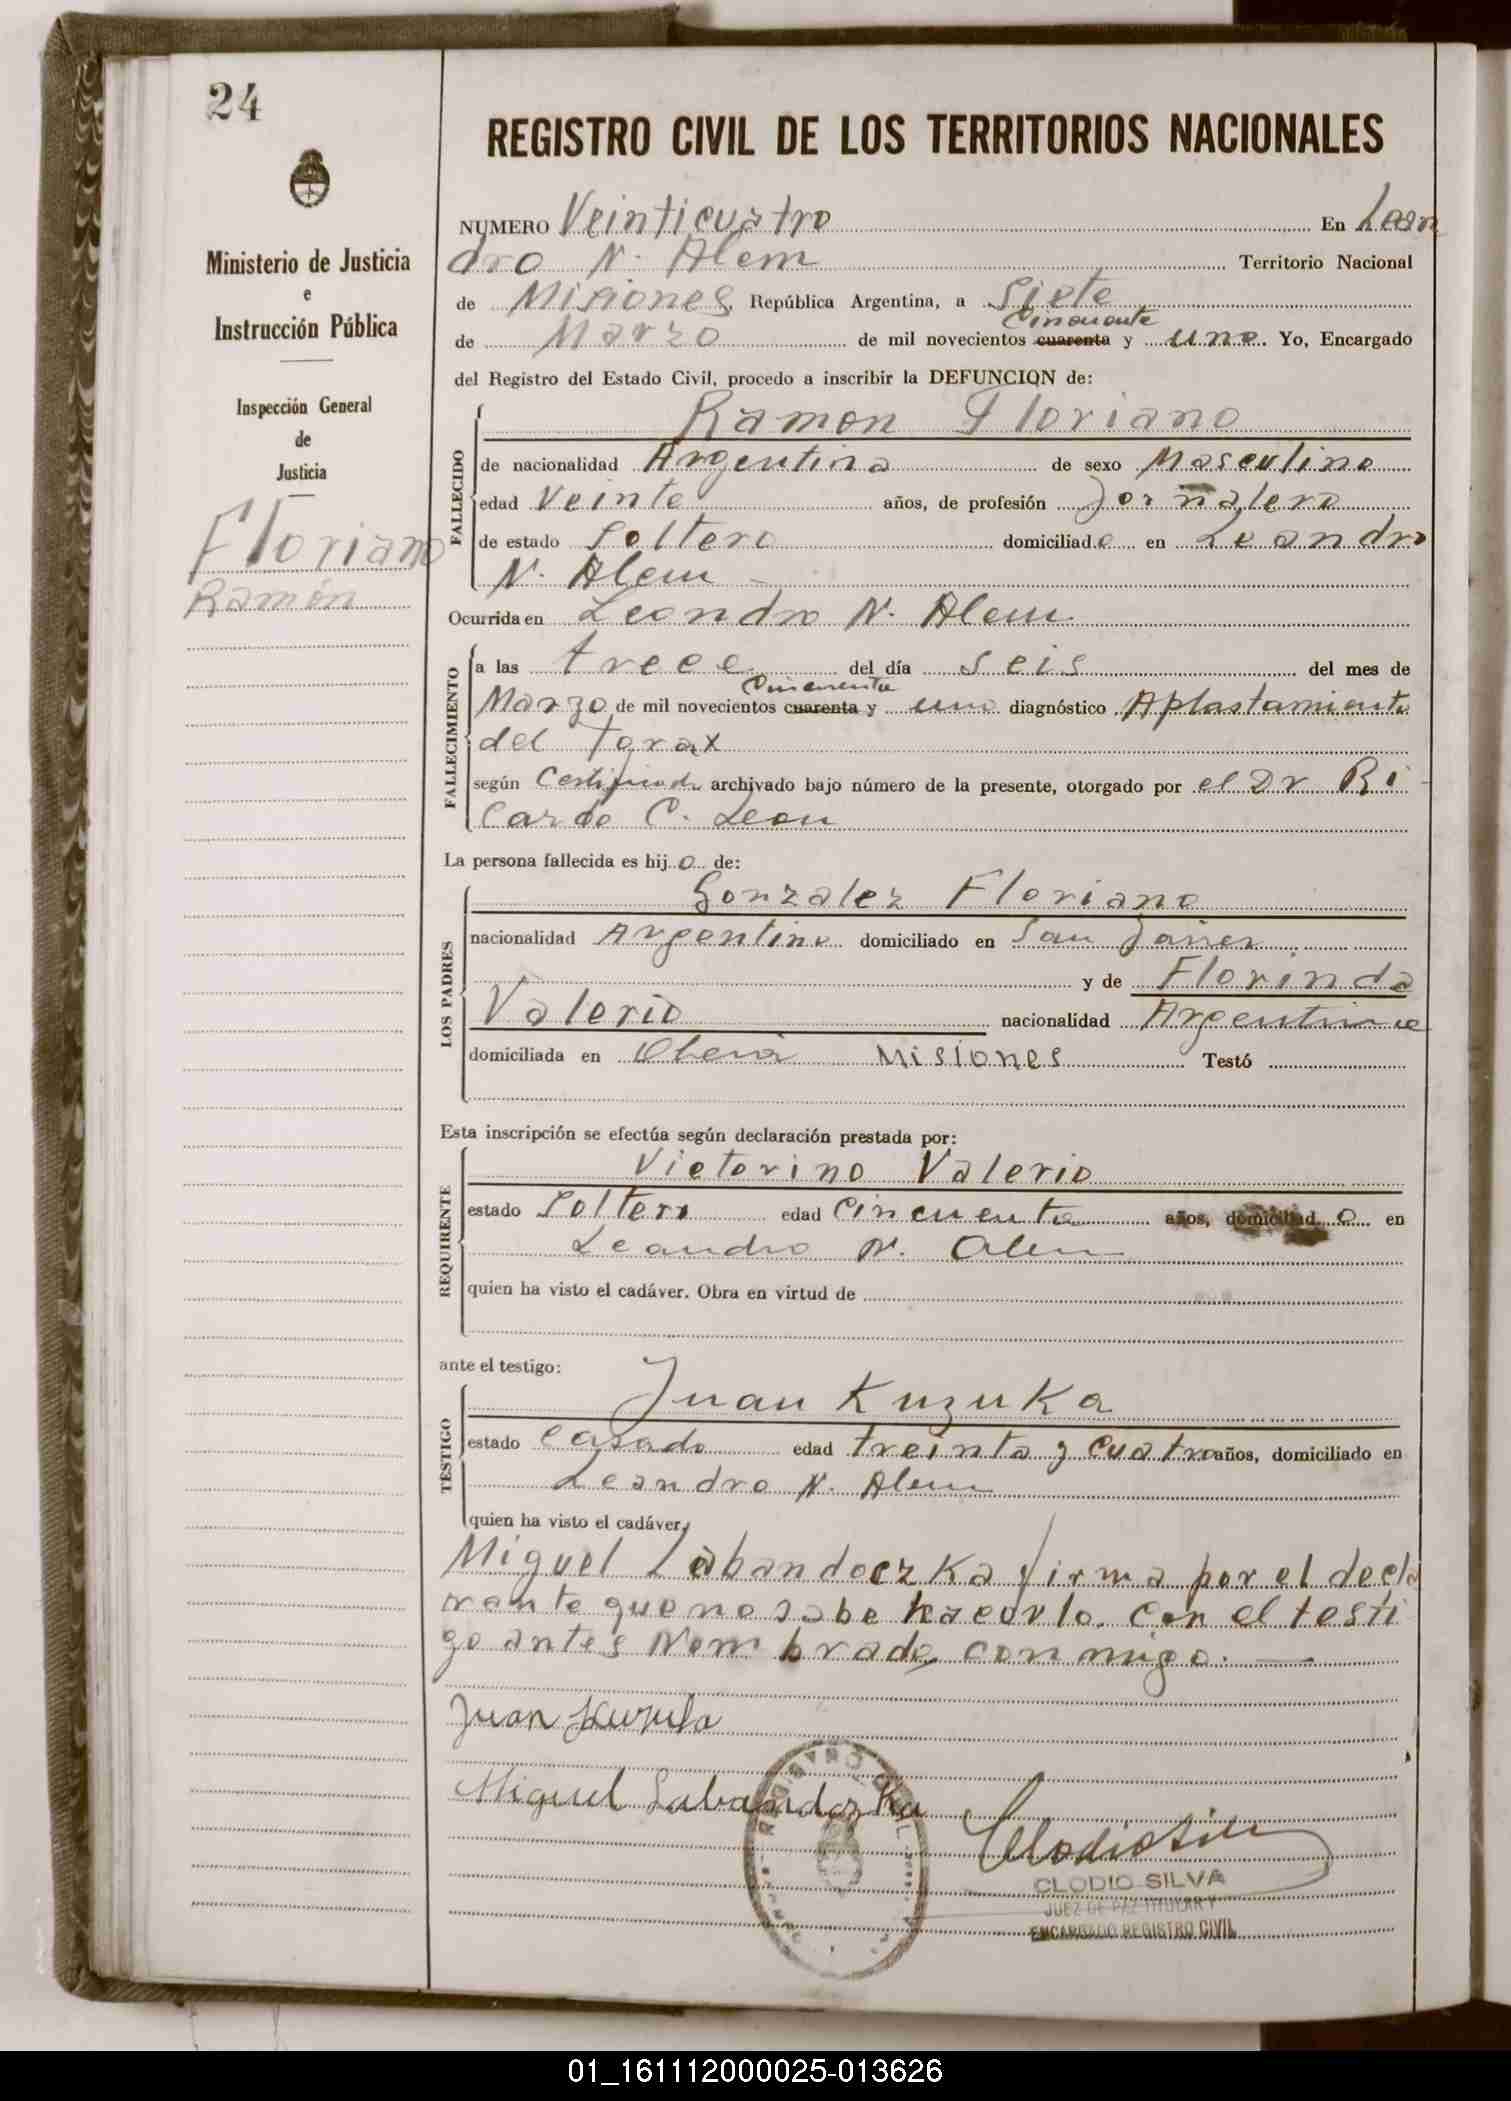 24
Ministerio de Justicia
e
Instrucción Pública
Inspección General
de
Justicia
Floriano
Ramón
REGISTRO CIVIL DE LOS TERRITORIOS NACIONALES
NUMERO Veinticuatro En Lean
dro N. Alem Territorio Nacional
de Misiones, República Argentina, a Siete
Cincuenta
de Marzo de mil novecientos cuarenta y uno. Yo, Encargado
del Registro del Estado Civil, procedo a inscribir la DEFUNCION de:
FALLECIDO
Ramon Floriano
de nacionalidad Argentina de sexo Masculino
edad Veinte años, de profesión Jornalero
de estado Soltero domiciliado en Leandro
N. Alem
Ocurrida en Leandro N. Alem
FALLECIMIENTO
a las trece del día seis del mes de
Cincuenta
Marzo de mil novecientos cuarenta y uno diagnóstico Aplastamiento
del Torax
según Certificado archivado bajo número de la presente, otorgado por el Dr Ri
cardo C. Leon
La persona fallecida es hijo de:
LOS PADRES
Gonzalez Floriano
nacionalidad Argentino domiciliado en San Javier
y de Florinda
Valerio nacionalidad Argentina
domiciliada en Oberá Misiones Testó
Esta inscripción se efectúa según declaración prestada por:
REQUIRENTE
Victorino Valerio
estado Soltero edad Cincuenta años, domiciliado en
Leandro N. Alem
quien ha visto el cadáver. Obra en virtud de
ante el testigo:
TESTIGO
Juan Kuzuka
estado Casado edad treinta y cuatro años, domiciliado en
Leandro N. Alem
quien ha visto el cadáver,
Miguel Labandoczka firma por el decla
rante que no sabe hacerlo. con el testi
go antes Nombrado, conmigo. —
Juan Kuzuka
Miguel Labandozka
REGISTRO CIVIL
Clodio Silva
CLODIO SILVA
JUEZ DE PAZ TITULAR Y
ENCARGADO REGISTRO CIVIL
01_161112000025-013626